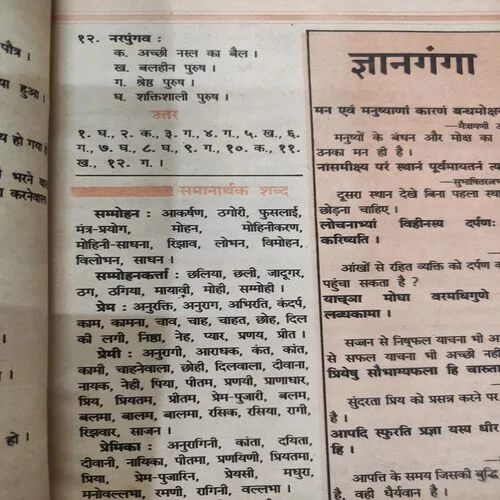 पौत्र ।
हुआ ।
हो गया
भरने
करनेवाल
।
।
हो ।
१२. नरपुंगव :
क. अच्छी नस्ल का बैल ।
ख. बलहीन पुरुष ।
ग. श्रेष्ठ पुरुष ।
घ. शक्तिशाली पुरुष ।
उत्तर
१. घ., २. क., ३. ग., ४. ग., ५. ख., ६.
ग., ७. घ., ८. घ., ९. ग., १०. क., ११.
ख., १२. ग. ।
समानार्थक शब्द
सम्मोहन : आकर्षण, ठगोरी, फुसलाई,
मंत्र-प्रयोग, मोहन, मोहिनीकरण,
मोहिनी-साधना, रिझाव, लोभन, विमोहन,
विलोभन, साधन ।
सम्मोहनकर्त्ता : छलिया, छली, जादूगर,
ठग, ठगिया, मायावी, मोही, सम्मोही ।
प्रेम : अनुरक्ति, अनुराग, अभिरति, कंदर्प,
काम, कामना, चाव, चाह, चाहत, छोह, दिल
की लगी, निष्ठा, नेह, प्यार, प्रणय, प्रीत ।
प्रेमी : अनुरागी, आराधक, कंत, कांत,
कामी, चाहनेवाला, छोही, दिलवाला, दीवाना,
नायक, नेही, पिया, पीतम, प्रणयी, प्राणाधार,
प्रिय, प्रियतम, प्रीतम, प्रेम-पुजारी, बलम,
बलमा, बालम, बालमा, रसिक, रसिया, रागी,
रिझवार, साजन ।
प्रेमिका : अनुरागिनी, कांता, दयिता,
दीवानी, नायिका, पीतमा, प्रणयिणी, प्रियतमा,
प्रिया, प्रेम-पुजारिन, प्रेयसी, मधुरा,
मनोवल्लभा, रमणी, रागिनी, वल्लभा ।
ज्ञानगंगा
मन एवं मनुष्याणां कारणं बन्धमोक्षय
—मैत्रायणी
मनुष्यों के बंधन और मोक्ष का
उनका मन ही है ।
नासमीक्ष्य परं स्थानं पूर्वमायतनं त्य
—सुभाषितरत्न
दूसरा स्थान देखे बिना पहला स्था
छोड़ना चाहिए ।
लोचनाभ्यां विहीनस्य दर्पणः
करिष्यति ।
आंखों से रहित व्यक्ति को दर्पण
पहुंचा सकता है ?
याच्ञा मोघा वरमधिगुणे
लब्धकामा ।
सज्जन से निष्फल याचना भी अ
से सफल याचना भी अच्छी नहीं
प्रियेषु सौभाग्यफला हि चारुता
सुंदरता प्रिय को प्रसन्न करने पर
है ।
आपदि स्फुरति प्रज्ञा यस्य धीर
हि ।
आपत्ति के समय जिसकी बुद्धि
है, वही धैर्यवान है ।